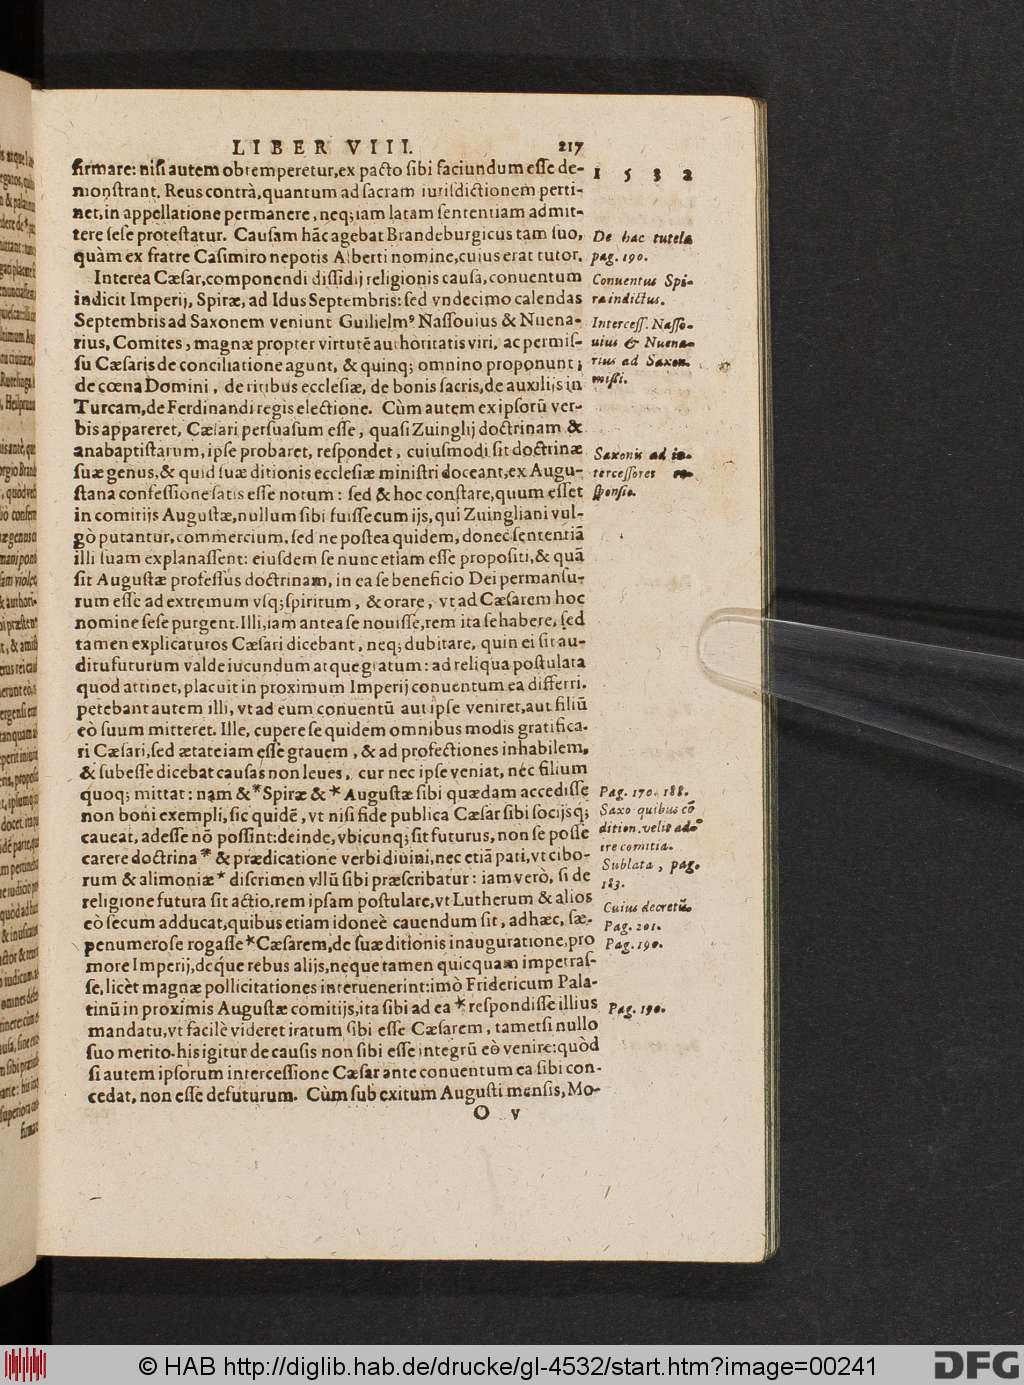 LIBER VIII. 217
firmare: nisi autem obtemperetur, ex pacto sibi faciundum esse de-
monstrant. Reus contrà, quantum ad sacram iurisdictionem perti-
net, in appellatione permanere, neq; iam latam sententiam admit-
tere sese protestatur. Causam hāc agebat Brandeburgicus tam suo,
quàm ex fratre Casimiro nepotis Alberti nomine, cuius erat tutor.
Interea Cæsar, componendi dissidij religionis causa, conuentum
indicit Imperij, Spiræ, ad Idus Septembris: sed vndecimo calendas
Septembris ad Saxonem veniunt Guilielmꝰ Nassouius & Nuena-
rius, Comites, magnæ propter virtutē authoritatis viri, ac permis-
su Cæsaris de conciliatione agunt, & quinq; omnino proponunt;
de cœna Domini, de ritibus ecclesiæ, de bonis sacris, de auxilijs in
Turcam, de Ferdinandi regis electione. Cùm autem ex ipsorū ver-
bis appareret, Cæsari persuasum esse, quasi Zuinglij doctrinam &
anabaptistarum, ipse probaret, respondet, cuiusmodi sit doctrinæ
suæ genus, & quid suæ ditionis ecclesiæ ministri doceant, ex Augu-
stana confessione satis esse notum: sed & hoc constare, quum esset
in comitijs Augustæ, nullum sibi fuisse cum ijs, qui Zuingliani vul-
gò putantur, commercium, sed ne postea quidem, donec sententiā
illi suam explanassent: eiusdem se nunc etiam esse propositi, & quā
sit Augustæ professus doctrinam, in ea se beneficio Dei permansu-
rum esse ad extremum vsq; spiritum, & orare, vt ad Cæsarem hoc
nomine sese purgent. Illi, iam antea se nouisse, rem ita se habere, sed
tamen explicaturos Cæsari dicebant, neq; dubitare, quin ei sit au-
ditu futurum valde iucundum atque gratum: ad reliqua postulata
quod attinet, placuit in proximum Imperij conuentum ea differri.
petebant autem illi, vt ad eum conuentū aut ipse veniret, aut filiū
eò suum mitteret. Ille, cupere se quidem omnibus modis gratifica-
ri Cæsari, sed ætate iam esse grauem, & ad profectiones inhabilem,
& subesse dicebat causas non leues, cur nec ipse veniat, nec filium
quoq; mittat: nam &* Spiræ &* Augustæ sibi quædam accedisse
non boni exempli, sic quidē, vt nisi fide publica Cæsar sibi socijsq;
caueat, adesse nō possint: deinde, vbicunq; sit futurus, non se posse
carere doctrina* & prædicatione verbi diuini, nec etiā pati, vt cibo-
rum & alimoniæ* discrimen vllū sibi præscribatur: iam verò, si de
religione futura sit actio, rem ipsam postulare, vt Lutherum & alios
eò secum adducat, quibus etiam idoneè cauendum sit, ad hæc, sæ-
penumero se rogasse* Cæsarem, de suæ ditionis inauguratione, pro
more Imperij, deq́ue rebus alijs, neque tamen quicquam impetras-
se, licèt magnæ pollicitationes interuenerint: imò Fridericum Pala-
tinū in proximis Augustæ comitijs, ita sibi ad ea* respondisse illius
mandatu, vt facilè videret iratum sibi esse Cæsarem, tametsi nullo
suo merito. his igitur de causis non sibi esse integrū eò venire: quòd
si autem ipsorum intercessione Cæsar ante conuentum ea sibi con-
cedat, non esse defuturum. Cùm sub exitum Augusti mensis, Mo-
O v
1532
De hac tutela
pag. 190.
Conuentus Spi-
ra indictus.
Intercess. Nasso-
uius & Nuena-
rius ad Saxon.
missi.
Saxonis ad in-
tercessores re-
sponsio.
Pag. 170. 188.
Saxo quibus cō
dition. velit ad-
ire comitia.
Sublata, pag.
183.
Cuius decretū.
Pag. 201.
Pag. 190.
Pag. 190.
© HAB http://diglib.hab.de/drucke/gl-4532/start.htm?image=00241
DFG